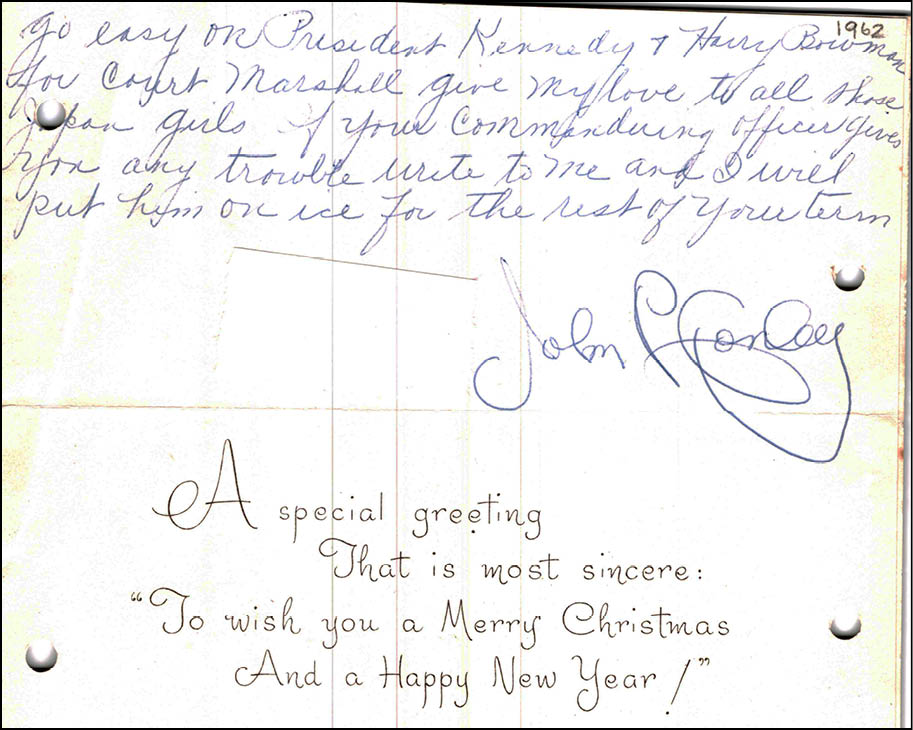 1962
Go easy on President Kennedy & Harry Bowman
for Court Marshall give my love to all those
Japan girls if your Commanduing officer gives
you any trouble write to me and I will
put him on ice for the rest of your term
John P Conley
A special greeting
That is most sincere:
“To wish you a Merry Christmas
And a Happy New Year!”